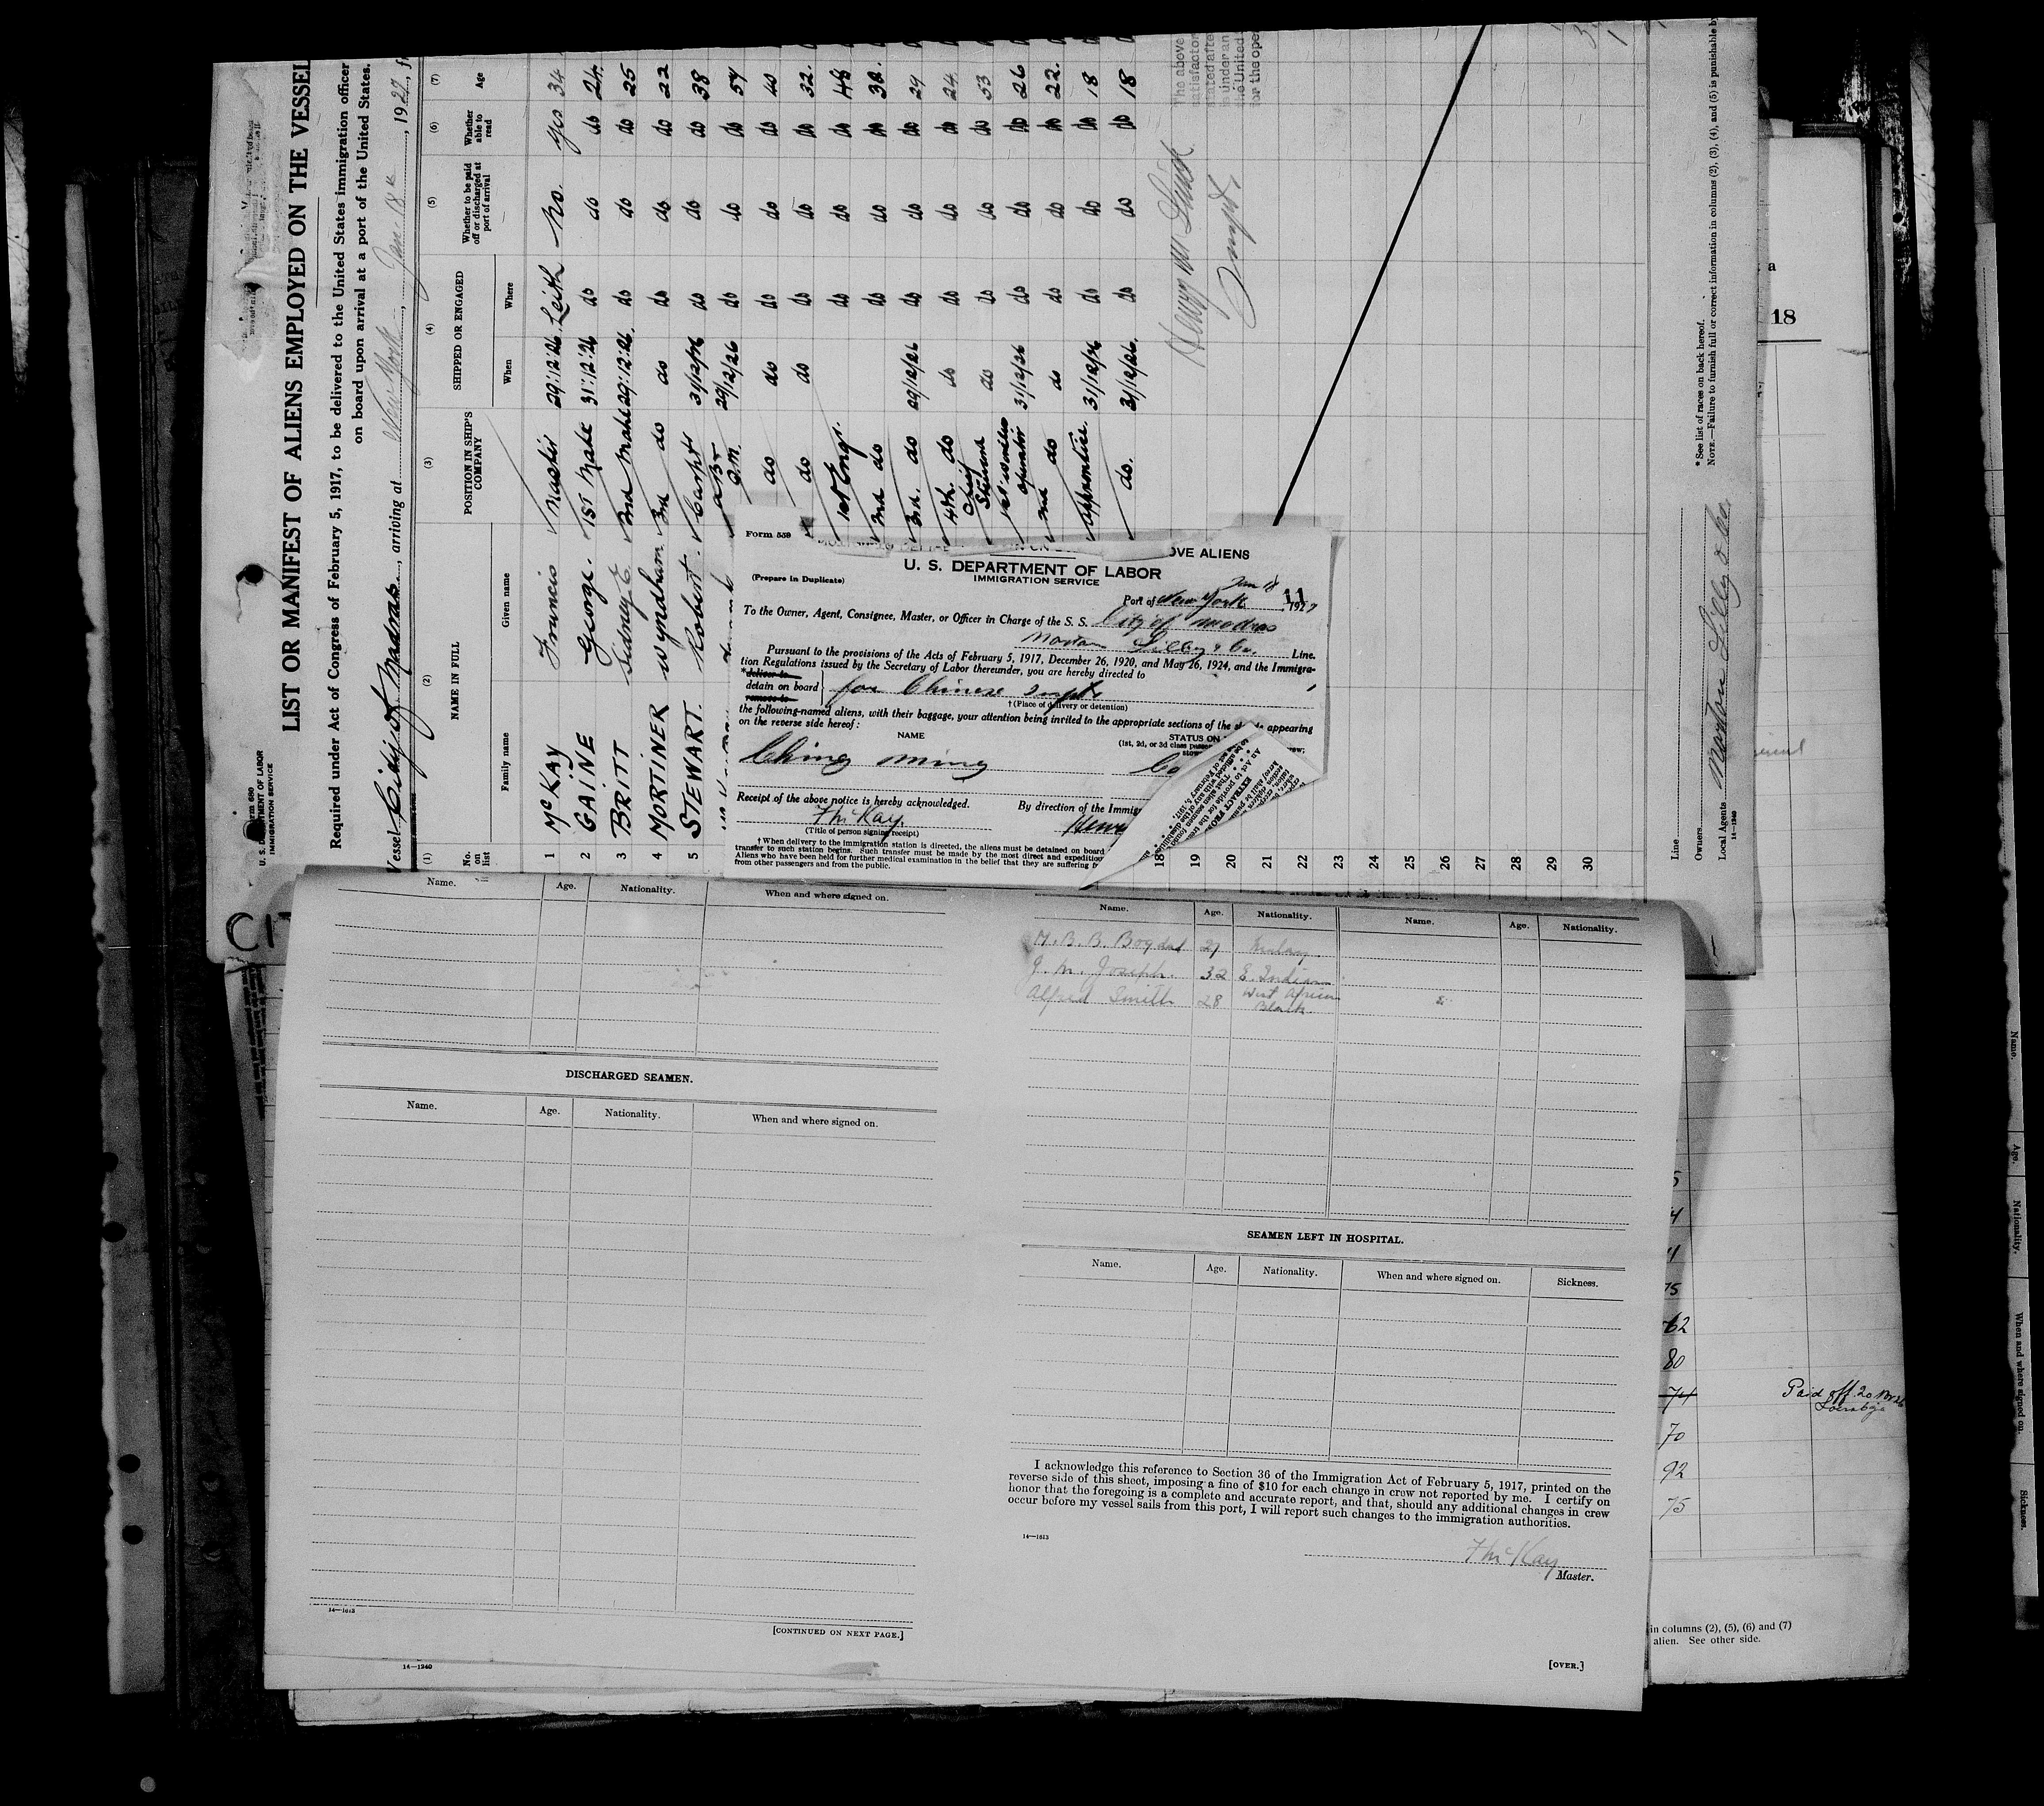 Form 680
U. S. DEPARTMENT OF LABOR
IMMIGRATION SERVICE
LIST OR MANIFEST OF ALIENS EMPLOYED ON THE VESSEL
Required under Act of Congress of February 5, 1917, to be delivered to the United States immigration officer
on board upon arrival at a port of the United States.
Vessel City of Madras, arriving at New York, Jan. 18th, 1927, f
(1) (2) (3) (4) (5) (6) (7)
No. on list
NAME IN FULL
Family name Given name
POSITION IN SHIP'S COMPANY
SHIPPED OR ENGAGED
When Where
Whether to be paid off or discharged at port of arrival
Whether able to read
Age
1 McKAY Francis Master 29:12:26 Leith No. yes 34
2 GAINE George. 1st Mate 31:12:26 do do do 24
3 BRITT Sidney E. 2nd Mate 29:12:26 do do do 25
4 MORTINER Wyndham 3rd do do do do do 22
5 STEWART. Robert. Carptr 31/12/26 do do do 38
29/12/26 do do do 54
do do do do do 40
do do do do do 32.
1st Engr. do do do 48
2nd do do do do 38.
3rd. do 29/12/26 do do do 29
4th. do do do do do 24
Chief Steward do do do do 53
1st Wireless operator 31/12/26 do do do 26
2nd do do do do do 22.
Apprentice. 31/12/26 do do do 18
do. 31/12/26. do do do 18
18
19
20
21
22
23
24
25
26
27
28
29
30
The above
satisfactor
stated afte
is under an
the United
for the ope
Line
Owners
Local Agents Norton Lilly & Co.
14—1240
* See list of races on back hereof.
NOTE.—Failure to furnish full or correct information in columns (2), (3), (4), and (5) is punishable by
Form 559
OVE ALIENS
U. S. DEPARTMENT OF LABOR
IMMIGRATION SERVICE
(Prepare in Duplicate)
Jan 18
11
Port of New York, 1927
To the Owner, Agent, Consignee, Master, or Officer in Charge of the S. S. City of Madras
Norton Lilly & Co. Line.
Pursuant to the provisions of the Acts of February 5, 1917, December 26, 1920, and May 26, 1924, and the Immigra-
tion Regulations issued by the Secretary of Labor thereunder, you are hereby directed to
*deliver to
detain on board for Chinese inspt.
remove to
†(Place of delivery or detention)
the following-named aliens, with their baggage, your attention being invited to the appropriate sections of the appearing
on the reverse side hereof:
NAME STATUS ON
(1st, 2d, or 3d class passe
Ching Ming Co
Receipt of the above notice is hereby acknowledged. By direction of the Immig
F McKay. Henry
(Title of person signing receipt)
† When delivery to the immigration station is directed, the aliens must be detained on board
transfer to such station begins. Such transfer must be made by the most direct and expeditio
Aliens who have been held for further medical examination in the belief that they are suffering f
from other passengers and from the public.
Name. Age. Nationality. When and where signed on.
DISCHARGED SEAMEN.
Name. Age. Nationality. When and where signed on.
14—1613
[CONTINUED ON NEXT PAGE.]
14—1240
Name. Age. Nationality. Name. Age. Nationality.
M. B. B. Bogdal 27 Malay.
J. M. Joseph. 32 E. Indian
Alfred Smith 28 West African
Black.
SEAMEN LEFT IN HOSPITAL.
Name. Age. Nationality. When and where signed on. Sickness.
I acknowledge this reference to Section 36 of the Immigration Act of February 5, 1917, printed on the
reverse side of this sheet, imposing a fine of $10 for each change in crew not reported by me. I certify on
honor that the foregoing is a complete and accurate report, and that, should any additional changes in crew
occur before my vessel sails from this port, I will report such changes to the immigration authorities.
14—1613
F McKay
Master.
[OVER.]
18
62
80
74 Paid off 20
70
92
75
in columns (2), (5), (6) and (7)
alien. See other side.
Name. Age. Nationality. When and where signed on. Sickness.